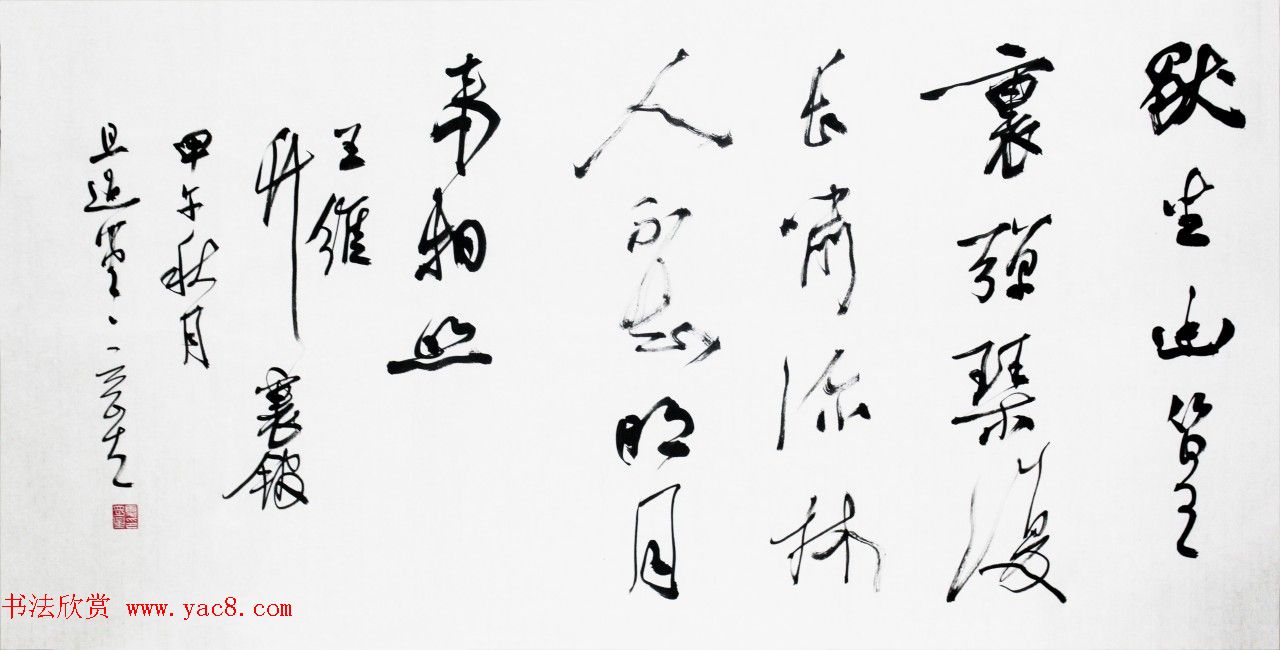 獨坐幽篁
裏彈琴復
長嘯深林
人不知明月
来相照
王維
竹裏館
甲午秋月
且過
书法欣赏 www.yac8.com